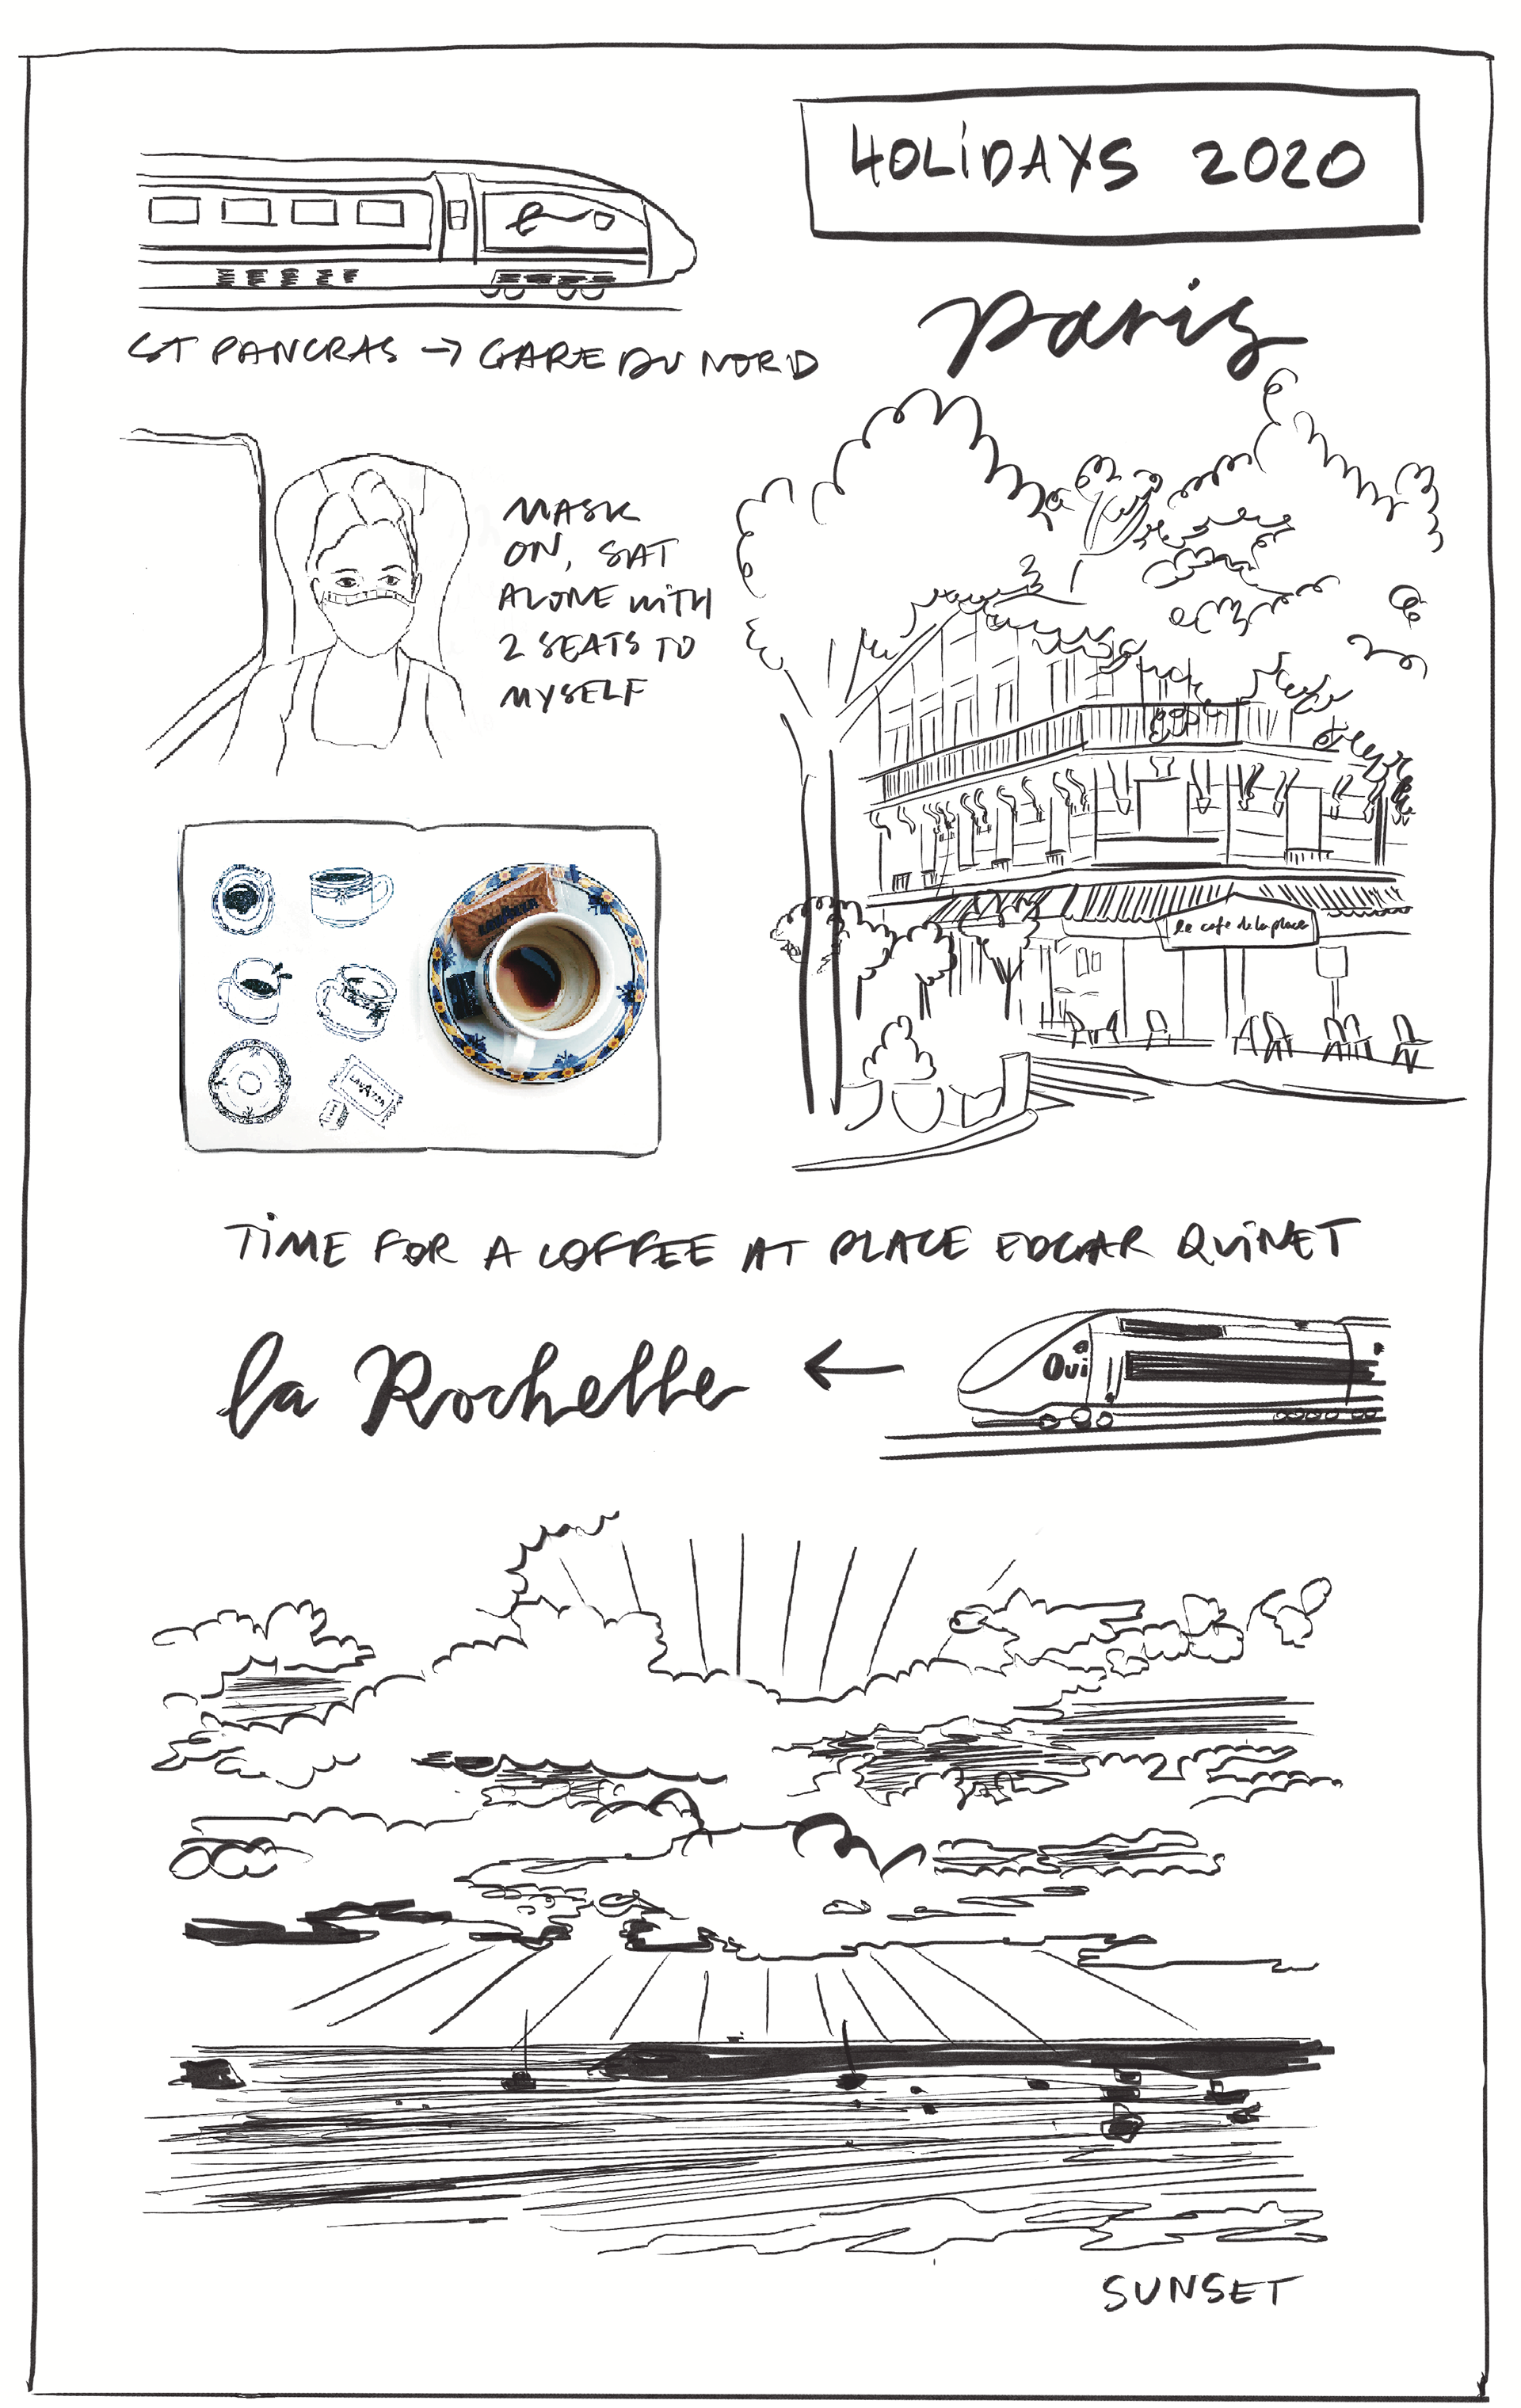 HOLiDAYS 2020
ST PANCRAS → GARE DU NORD
paris
MASK
ON, SAT
ALONE WITH
2 SEATS TO
MYSELF
le café de la place
LAVAZZA
TiME FOR A COFFEE AT PLACE EDGAR QUiNET
la Rochelle ←
Oui
SUNSET